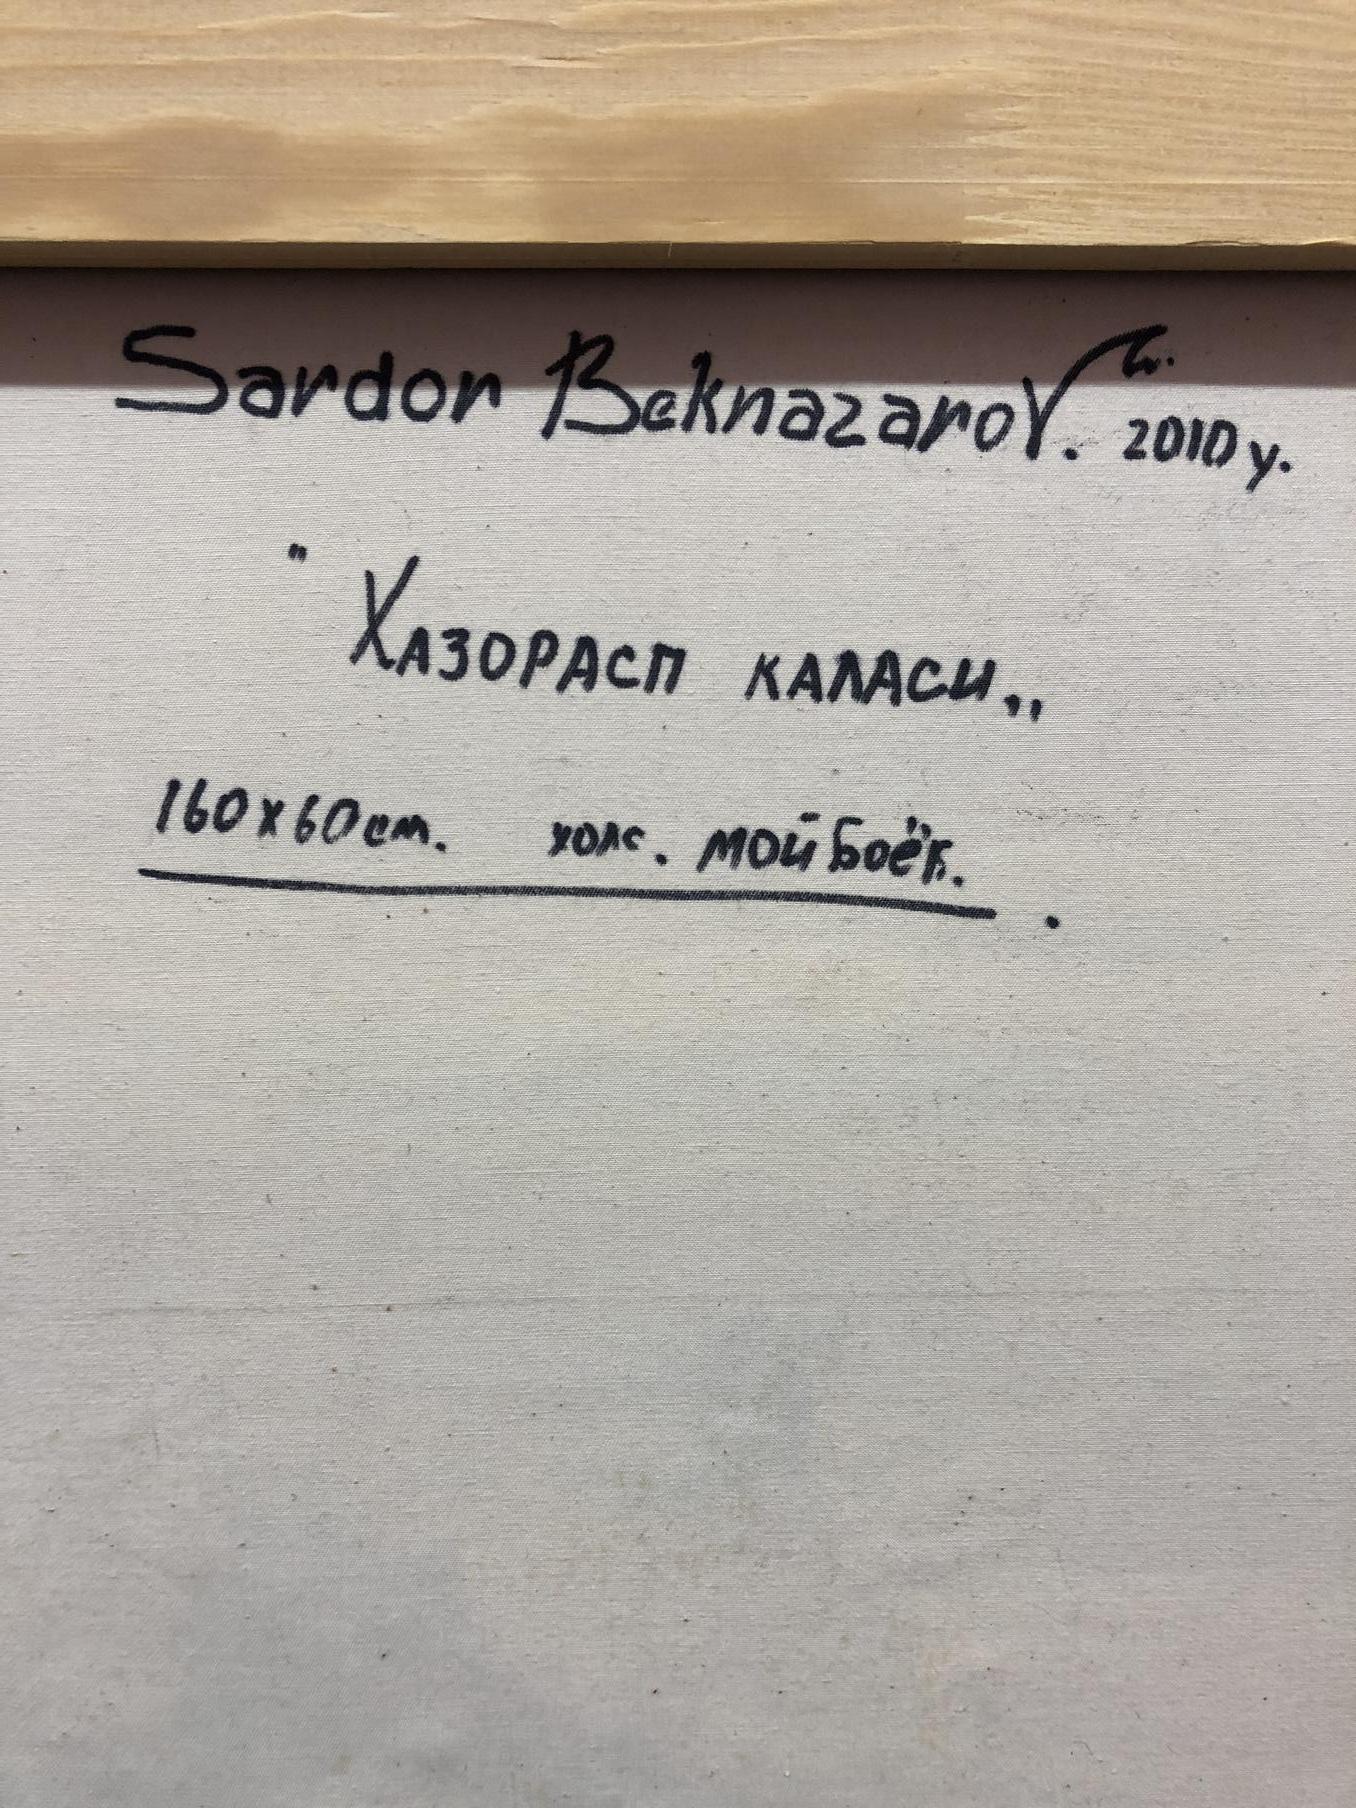 Sardor Beknazarov. 2010 y.
" Хазорасп каласи„
160x60 см. холс. мойбоёк.